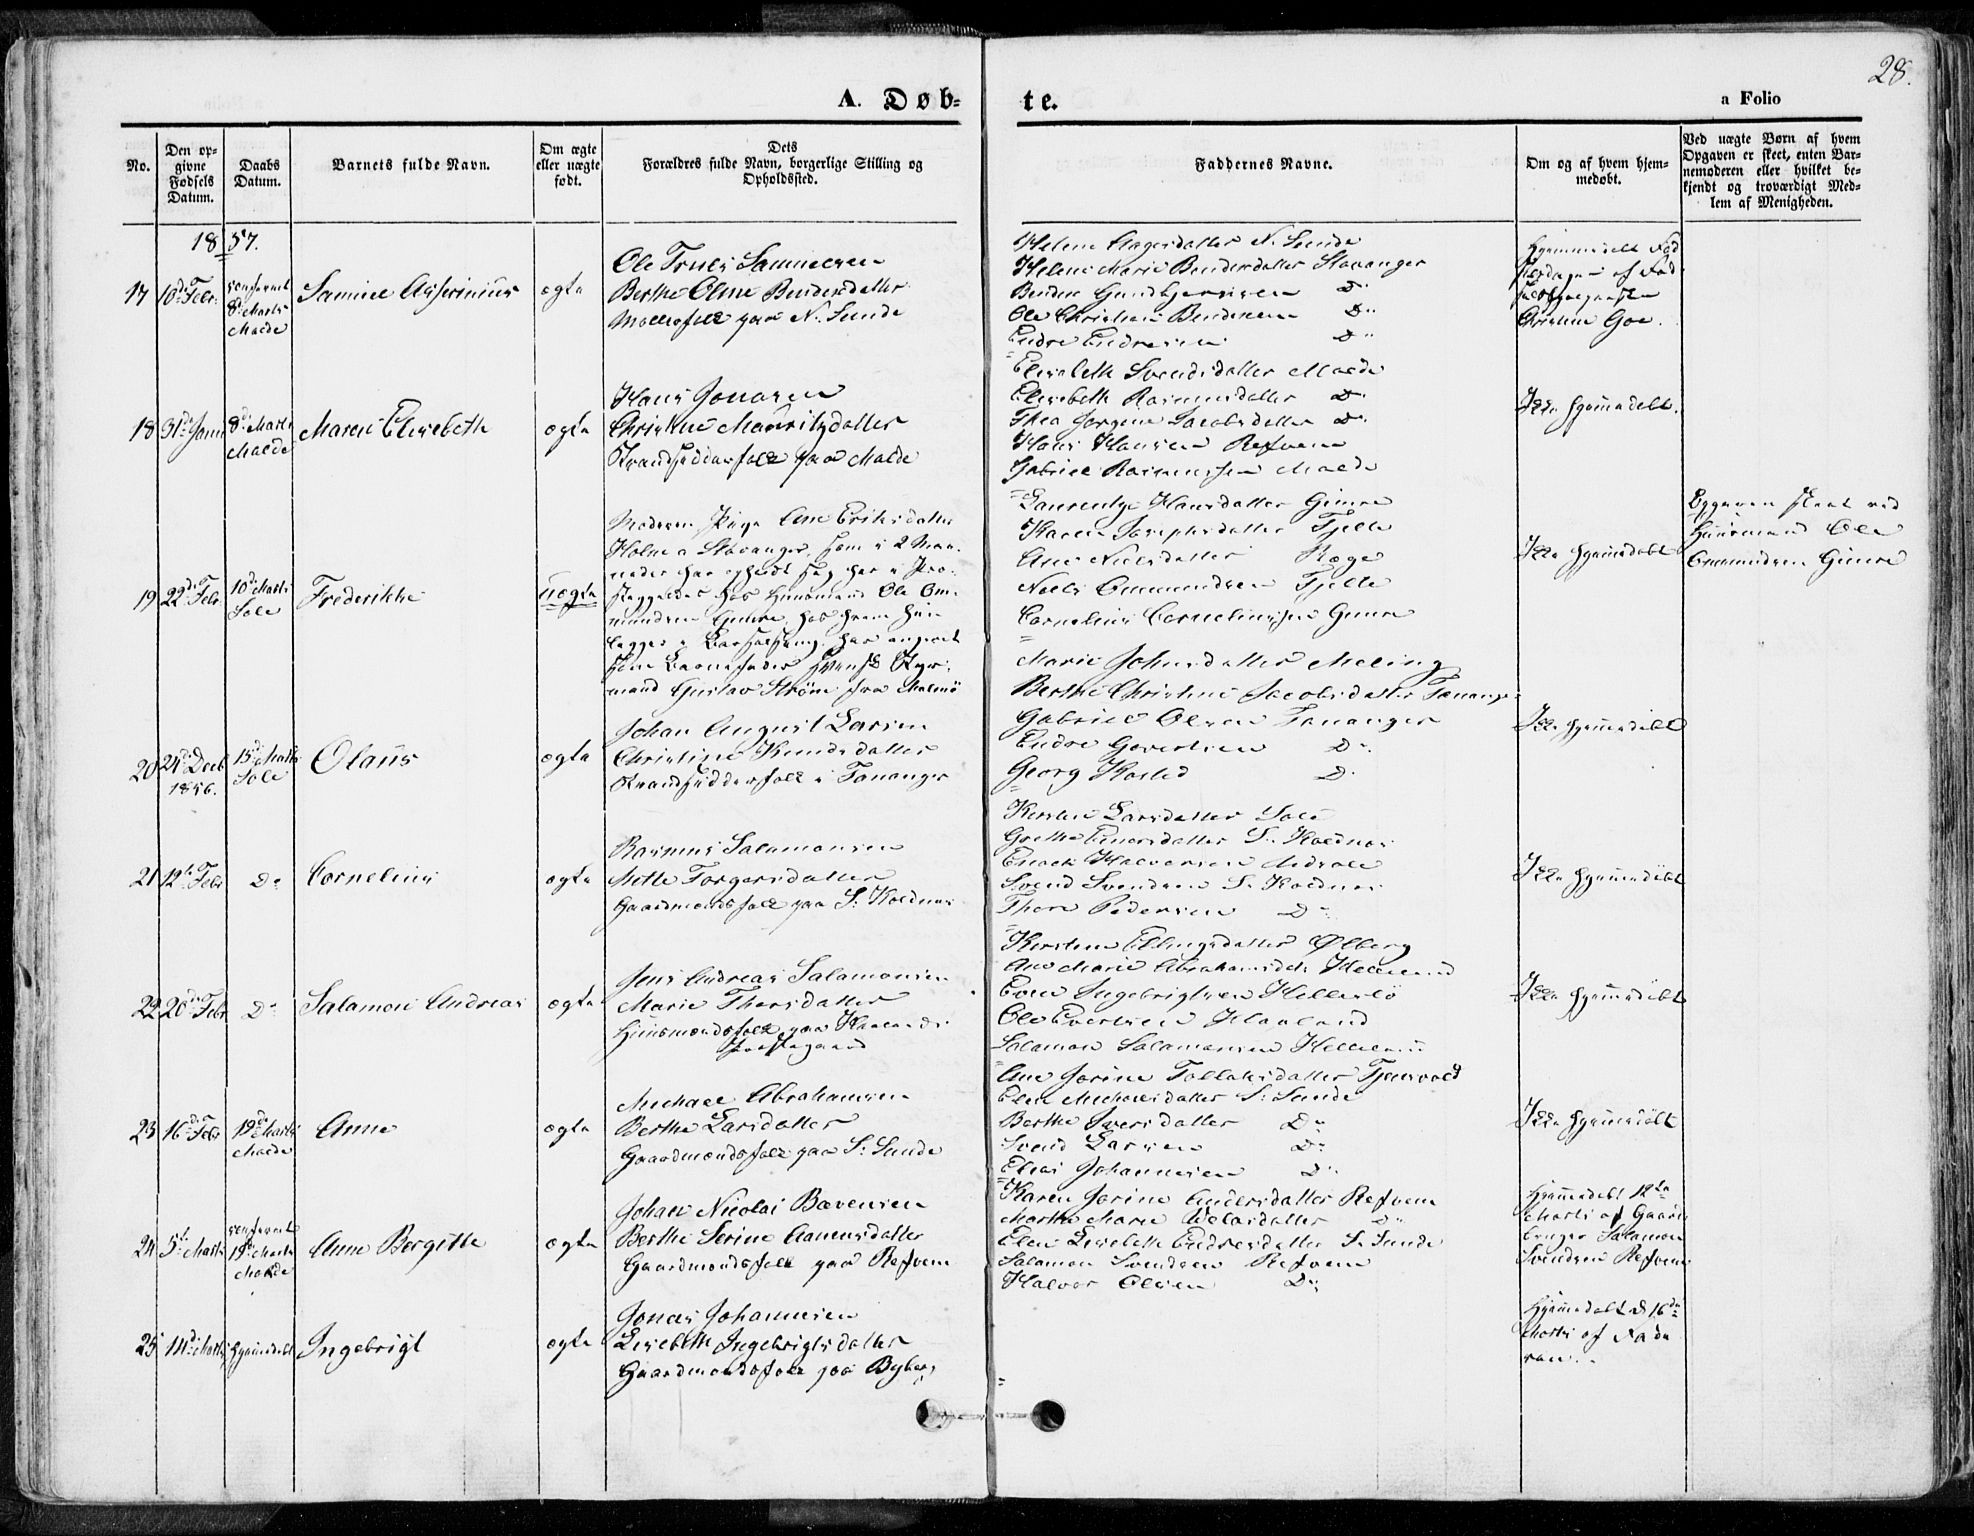 28.
A. Døb-
te.
a Folio
No.
Den op-
givne
Fødsels
Datum.
Daabs
Datum.
Barnets fulde Navn.
Om ægte
eller uægte
født.
Dets
Forældres fulde Navn, borgerlige Stilling og
Opholdssted.
Faddernes Navne.
Om og af hvem hjem-
medøbt.
Ved uægte Børn af hvem
Opgaven er skeet, enten Bar-
nemoderen eller hvilket be-
kjendt og troværdigt Med-
lem af Menigheden.
1857.
17
10de Febr.
8de Marts
Malde
Samuel Asserinius
ægte
Ole Truls Samuelsen
Berthe Oline Bendixdatter
paa N. Sunde
Helene Aagesdatter N. Sunde
Helene Marie Bendixdatter Stavanger
D
Ole Christian Bendixen D
Endre Endresen D
Christine Goe.
18
31te Janu
8de Marts
Malde
Maren Elisebeth
ægte
Hans Jonasen
Christine Mauritzdatter
Strandsidderfolk paa Malde
Elisabeth Svendsdatter Malde
Elisebeth Rasmusdatter D
Thea Jorgine Jacobsdatter D
Hans Hansen Refvem
Gabriel Rasmussen Malde
Ikke hjemmedøbt.
19
22de Febr
10de Marts
Sole
Frederikke
uægte
Moderen Pige Ane Eriksdatter
Holme a Stavanger, som i 2 Maa-
neder har opholdt sig her i Præ-
stegjeldet hos Huusmand Ole Om-
mundsen Gimre, hos hvem hun
ligger i Barselseng, har angivet
som Barnefader svensk Styr-
mand Gustav Strøm fra Malmö
Laurentze Hansdatter Gimre
Karen Josephsdatter Tjelte
Ane Nielsdatter Røge
Niels Ommundsen Tjelte
Cornelius Corneliussen Gimre
Ikke hjemmedøbt
Opgaven skeet ved
Huusmand Ole
Ommundsen Gimre
20
24de Decb
1856.
15de Marts
Sole
Olaus
ægte
Johan August Larsen
Christine Knudsdatter
Strandsidderfolk i Tananger
Marie Johnsdatter Meling
Berthe Christine Jacobsdatter Tananger
Gabriel Olsen Tananger
Endre Govertsen D
Georg Kosled D
Ikke hjemmedøbt
21
12te Febr
D
Cornelius
ægte
Rasmus Salamonsen
Mette Torgersdatter
Gaardmandsfolk paa S. Kolnes
Kirsten Larsdatter Sole
Grethe Einersdatter S. Kolnes
Enock Halvorsen
Svend Svendsen S. Kolnes
Thore Pedersen D
Ikke hjemmedøbt
22
20de Febr
D
Salamon Andreas
ægte
Jens Andreas Salamonsen
Marie Thorsdatter
Huusmandsfolk paa Haalands
Præstegaard
Kirstine Ellingsdatter Ølberg
Ane Marie Abrahamsdtr
Even Ingebrigtsen Hellestø
Ole Evertsen Haaland
Salamon Salamonsen
Ikke hjemmedøbt
23
16de Febr
19de Marts
Malde
Anne
ægte
Michael Abrahamsen
Berthe Larsdatter
Gaardmandsfolk paa S. Sunde
Ane Jorine Tollaksdatter Tjensvold
Elen Michelsdatter S. Sunde
Berthe Iversdatter D
Svend Larsen D
Elias Johannesen D
Ikke hjemmedøbt
24
5te Marts
19de Marts
Malde
Anne Bergitte
ægte
Johan Nicolai Bærensen
Berthe Serine Aanensdatter
Gaardmandsfolk paa Refvem
Karen Jorine Andersdatter Refvem
Marthe Marie D
Elen Lisebeth Endresdatter S. Sunde
Salamon Svendsen Refvem
Halvor Olsen D
Hjemmedøbt 12te
Marts af Gaard-
bruger Salamon
Svendsen Refvem
25
14de Marts
hjemmedøbt
Ingebrigt
ægte
Jonas Johannesen
Lisebeth Ingebrigtsdatter
Gaardmandsfolk paa Byberg
Hjemmedøbt d 16de
Marts af Fade-
ren.